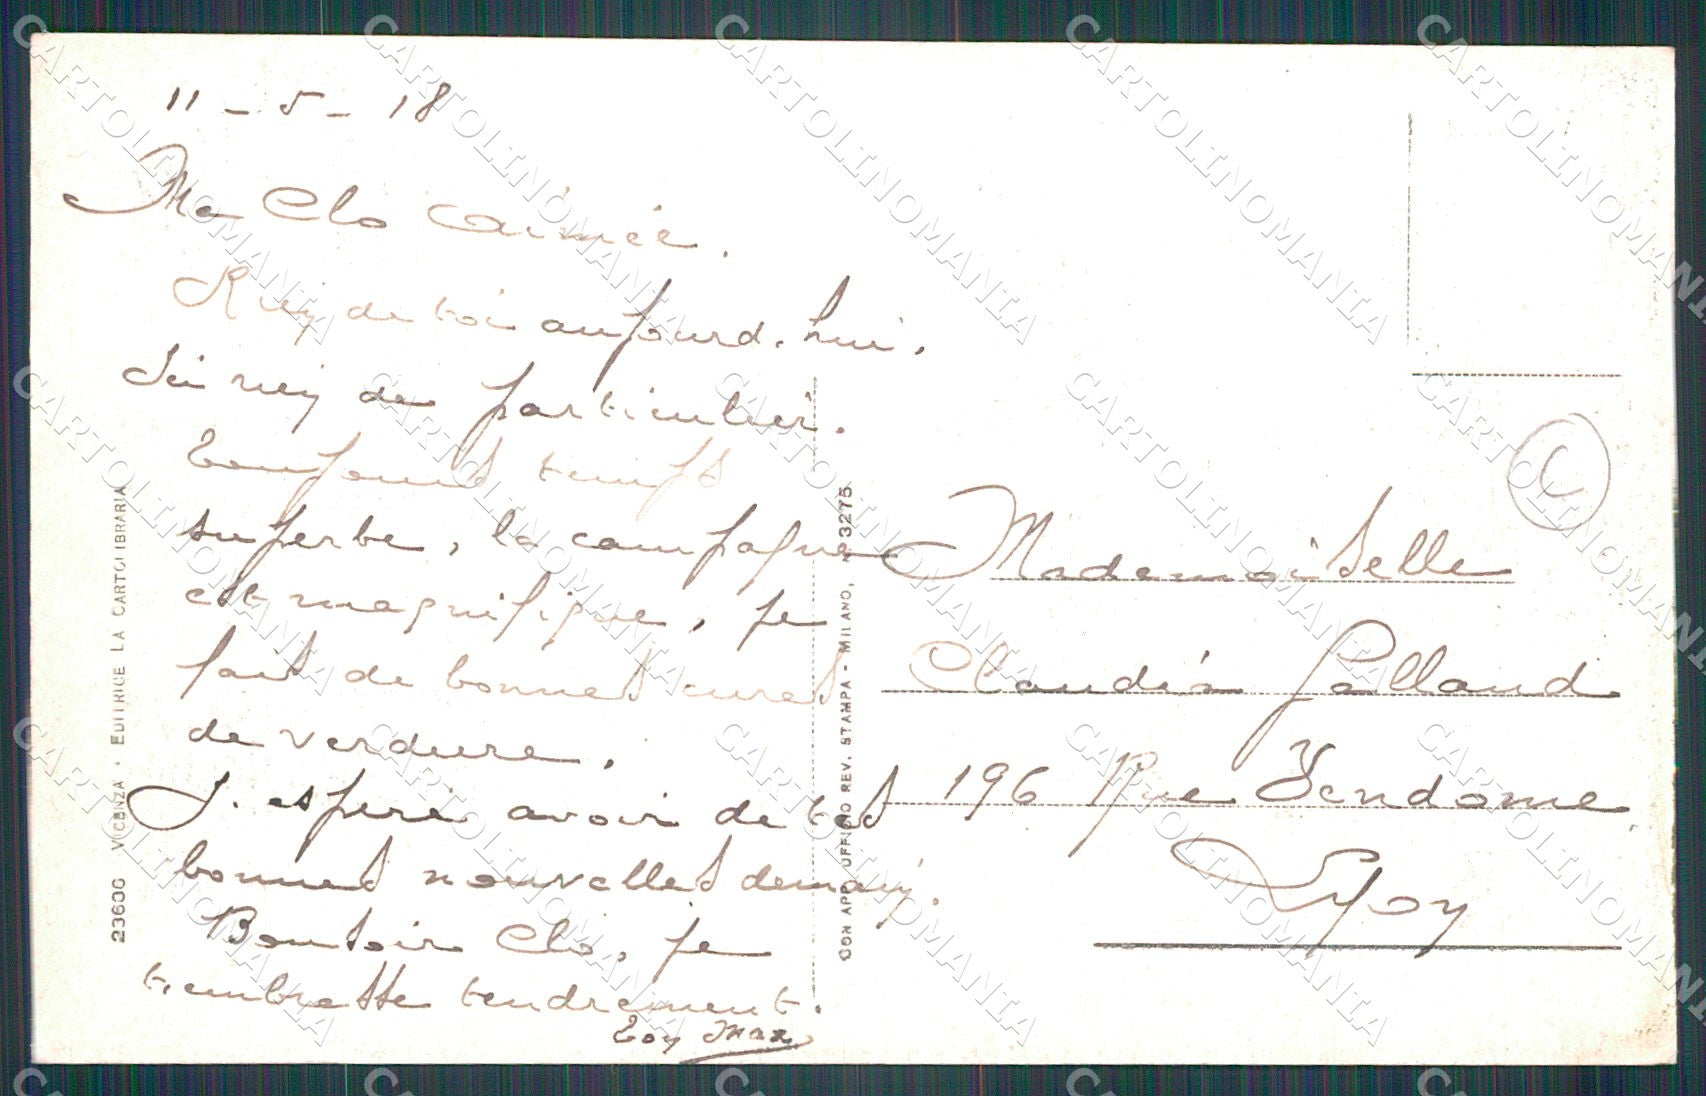 11 - 5 - 18
Ma Clo aimée.
Rien de toi aujourd'hui.
Ici rien de particulier.
Toujours temps
superbe, la campagne
est magnifique, je
fais de bonnes cures
de verdure.
J'espère avoir de tes
bonnes nouvelles demain.
Bonsoir Clo, je
t'embrasse tendrement.
Ton Max
23606 VICENZA - EDITRICE LA CARTOLIBRARIA
CON APP. UFFICIO REV. STAMPA - MILANO, N. 3275
C
Mademoiselle
Claudia Galland
196 Rue Vendome
Lyon
CARTOLINOMANIA